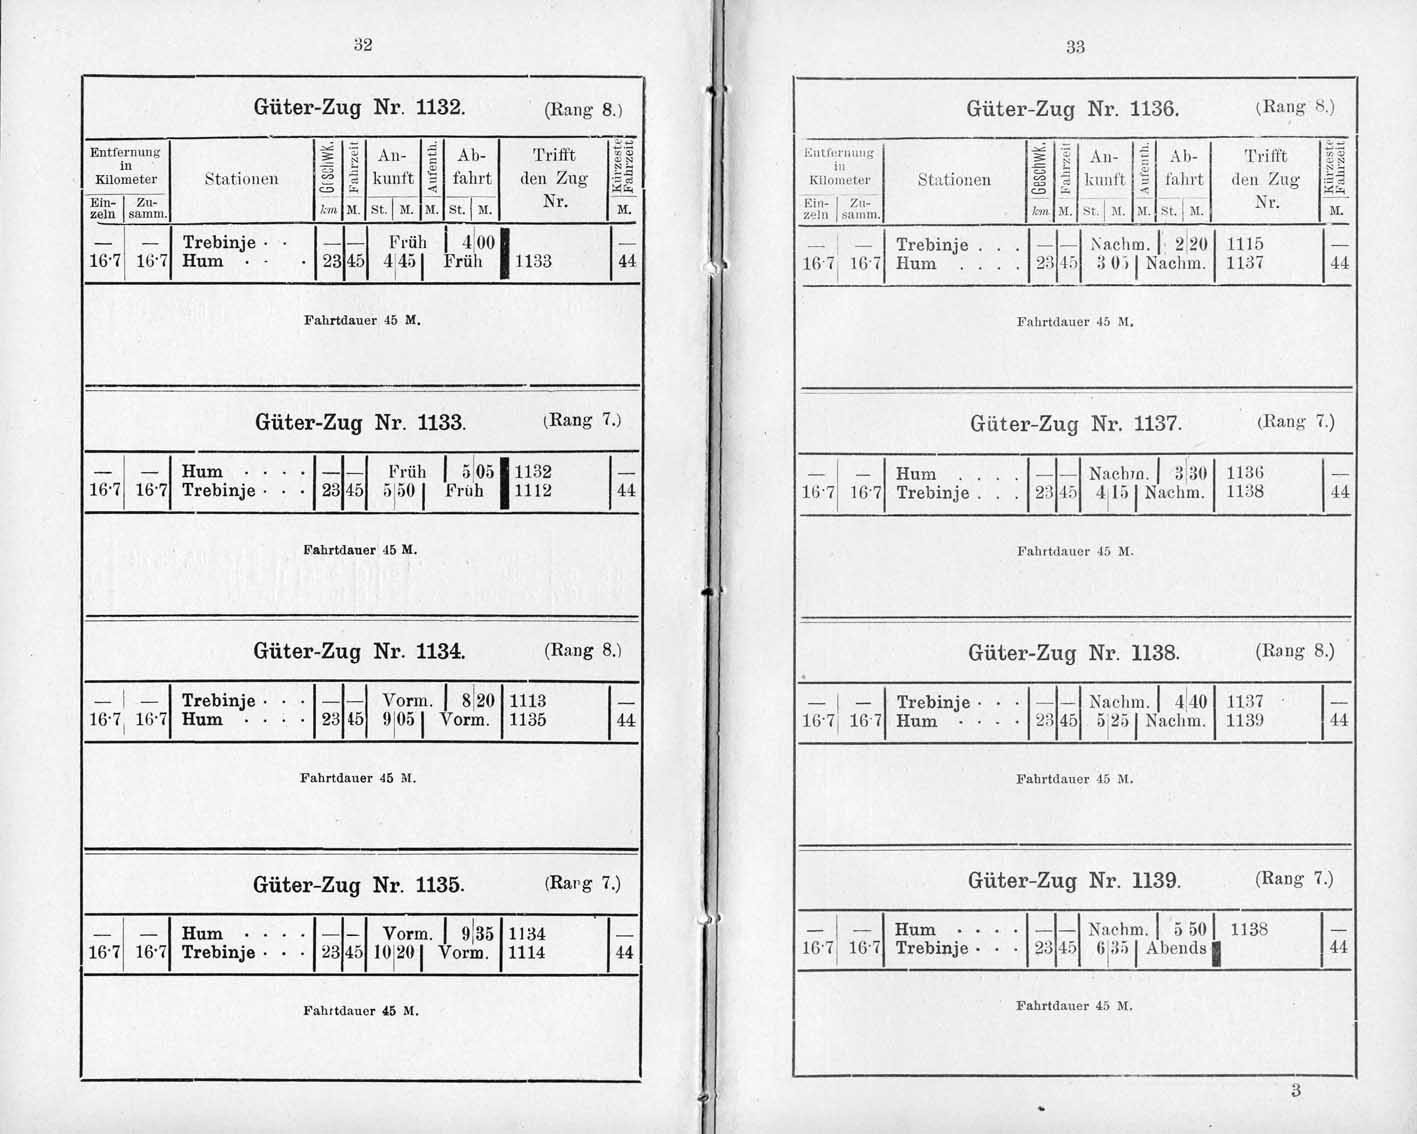 32
Güter-Zug Nr. 1132. (Rang 8.)
Entfernung in Kilometer Stationen Geschwk. Fahrzeit An-kunft Aufenth. Ab-fahrt Trifft den Zug Nr. Kürzeste Fahrzeit
Ein-zeln Zu-samm. km M. St. M. M. St. M. M.
— — Trebinje · · — — Früh 4 00 —
16·7 16·7 Hum · · · 23 45 4 45 Früh 1133 44
Fahrtdauer 45 M.
Güter-Zug Nr. 1133. (Rang 7.)
— — Hum · · · · — — Früh 5 05 1132 —
16·7 16·7 Trebinje · · · 23 45 5 50 Früh 1112 44
Fahrtdauer 45 M.
Güter-Zug Nr. 1134. (Rang 8.)
— — Trebinje · · · — — Vorm. 8 20 1113 —
16·7 16·7 Hum · · · · 23 45 9 05 Vorm. 1135 44
Fahrtdauer 45 M.
Güter-Zug Nr. 1135. (Rang 7.)
— — Hum · · · · — — Vorm. 9 35 1134 —
16·7 16·7 Trebinje · · · 23 45 10 20 Vorm. 1114 44
Fahrtdauer 45 M.
33
Güter-Zug Nr. 1136. (Rang 8.)
Entfernung in Kilometer Stationen Geschwk. Fahrzeit An-kunft Aufenth. Ab-fahrt Trifft den Zug Nr. Kürzeste Fahrzeit
Ein-zeln Zu-samm. km M. St. M. M. St. M. M.
— — Trebinje . . . — — Nachm. 2 20 1115 —
16·7 16·7 Hum . . . . 23 45 3 05 Nachm. 1137 44
Fahrtdauer 45 M.
Güter-Zug Nr. 1137. (Rang 7.)
— — Hum . . . . — — Nachm. 3 30 1136 —
16·7 16·7 Trebinje . . . 23 45 4 15 Nachm. 1138 44
Fahrtdauer 45 M.
Güter-Zug Nr. 1138. (Rang 8.)
— — Trebinje · · · — — Nachm. 4 40 1137 —
16·7 16·7 Hum · · · · 23 45 5 25 Nachm. 1139 44
Fahrtdauer 45 M.
Güter-Zug Nr. 1139. (Rang 7.)
— — Hum · · · · — — Nachm. 5 50 1138 —
16·7 16·7 Trebinje · · · 23 45 6 35 Abends 44
Fahrtdauer 45 M.
3